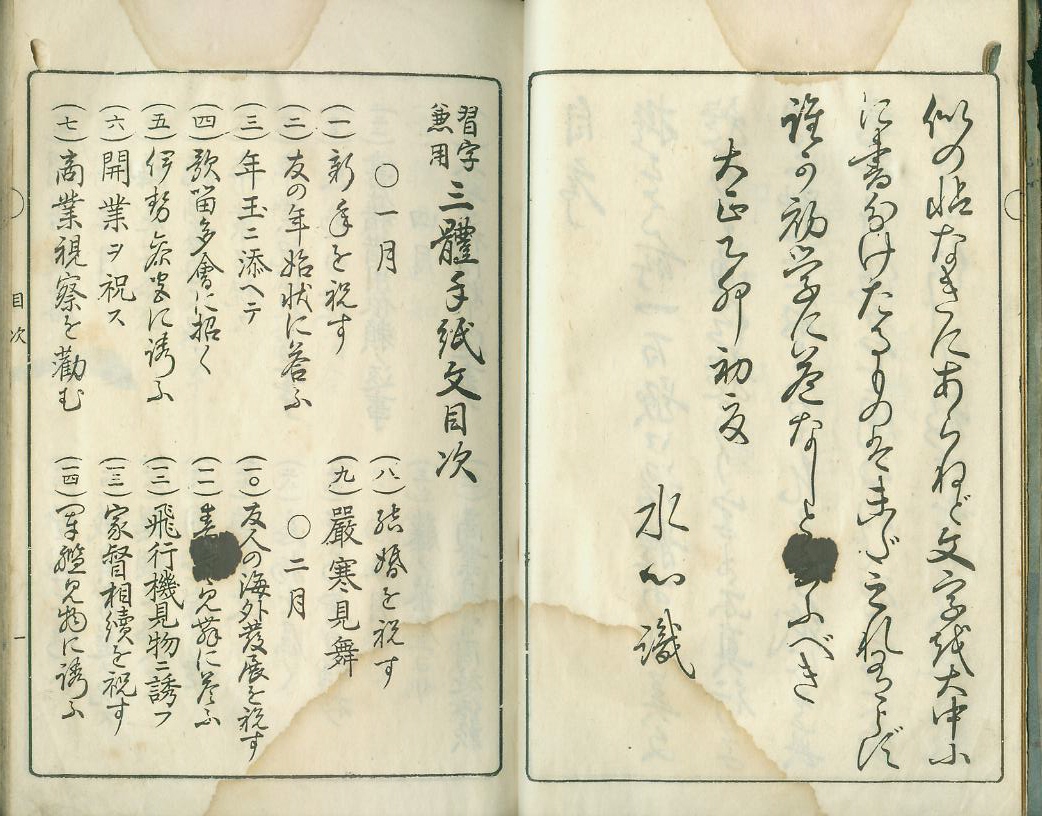 似の帖なきにあらねど文字を大中小
に書分けたるものは未だ之れあらず
誰か初学に益なしと ふべき
大正乙卯初夏
水心識
習字兼用 三體手紙文目次
○一月
(一)新年を祝す
(二)友の年始状に答ふ
(三)年玉ニ添ヘテ
(四)歌留多會に招く
(五)伊勢参宮に誘ふ
(六)開業ヲ祝ス
(七)商業視察を勸む
(八)結婚を祝す
(九)嚴寒見舞
○二月
(一〇)友人の海外發展を祝す
(一一)春 見舞に答ふ
(一二)飛行機見物ニ誘フ
(一三)家督相續を祝す
(一四)軍艦見物に誘ふ
目次
一